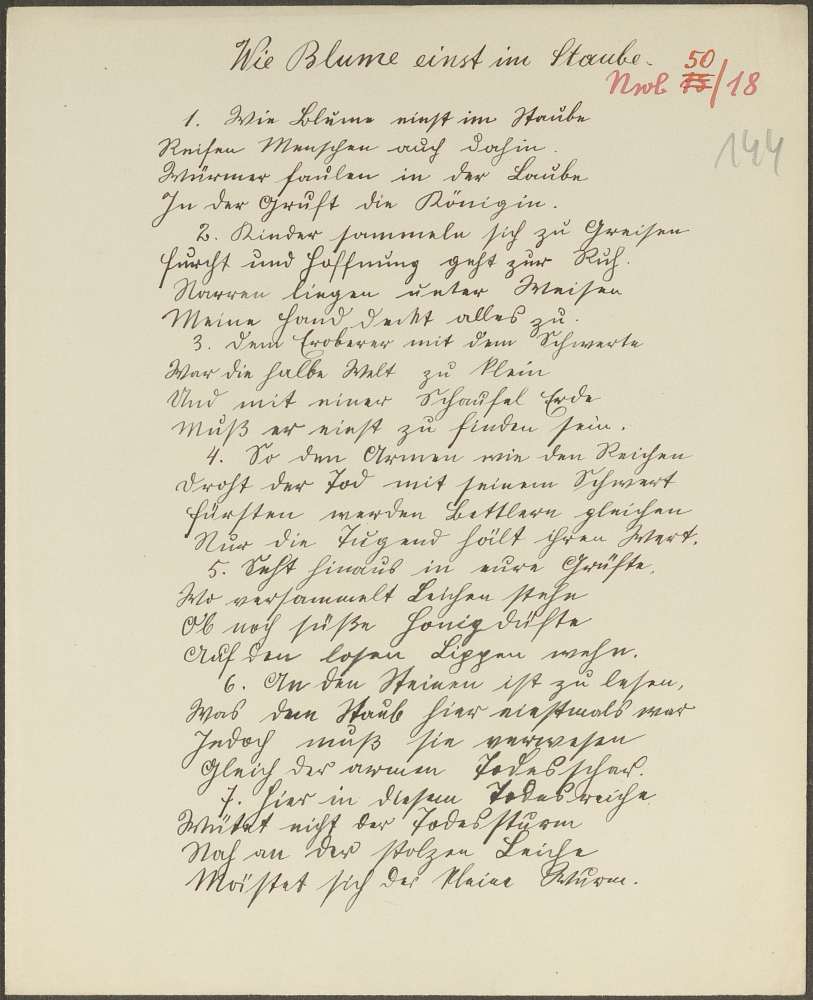 Wie Blume einst im Staube.
Nwb 50/18
144
1. Wie Blume einst im Staube
Reifen Menschen auch dahin.
Würmer faulen in der Laube
In der Gruft die Königin.
2. Kinder sammeln sich zu Greisen
Furcht und Hoffnung geht zur Ruh.
Narren liegen unter Weisen
Meine Hand deckt alles zu.
3. Dem Eroberer mit dem Schwerte
War die halbe Welt zu klein
Und mit einer Schaufel Erde
Muß er einst zu finden sein.
4. So den Armen wie den Reichen
Droht der Tod mit seinem Schwert
Fürsten werden Bettlern gleichen
Nur die Tugend hält ihren Wert.
5. Seht hinaus in eure Grüfte,
Wo versammelt Leichen stehn
Ob noch süße Honigdüfte
Auf den losen Lippen wehn.
6. An den Steinen ist zu lesen,
Was dem Staub hier einstmals war
Jedoch muß sie verwesen
Gleich der armen Todesschar.
7. Hier in diesem Todesreiche
Wütet nicht der Todessturm
Nah an der stolzen Leiche
Mästet sich der kleine Wurm.